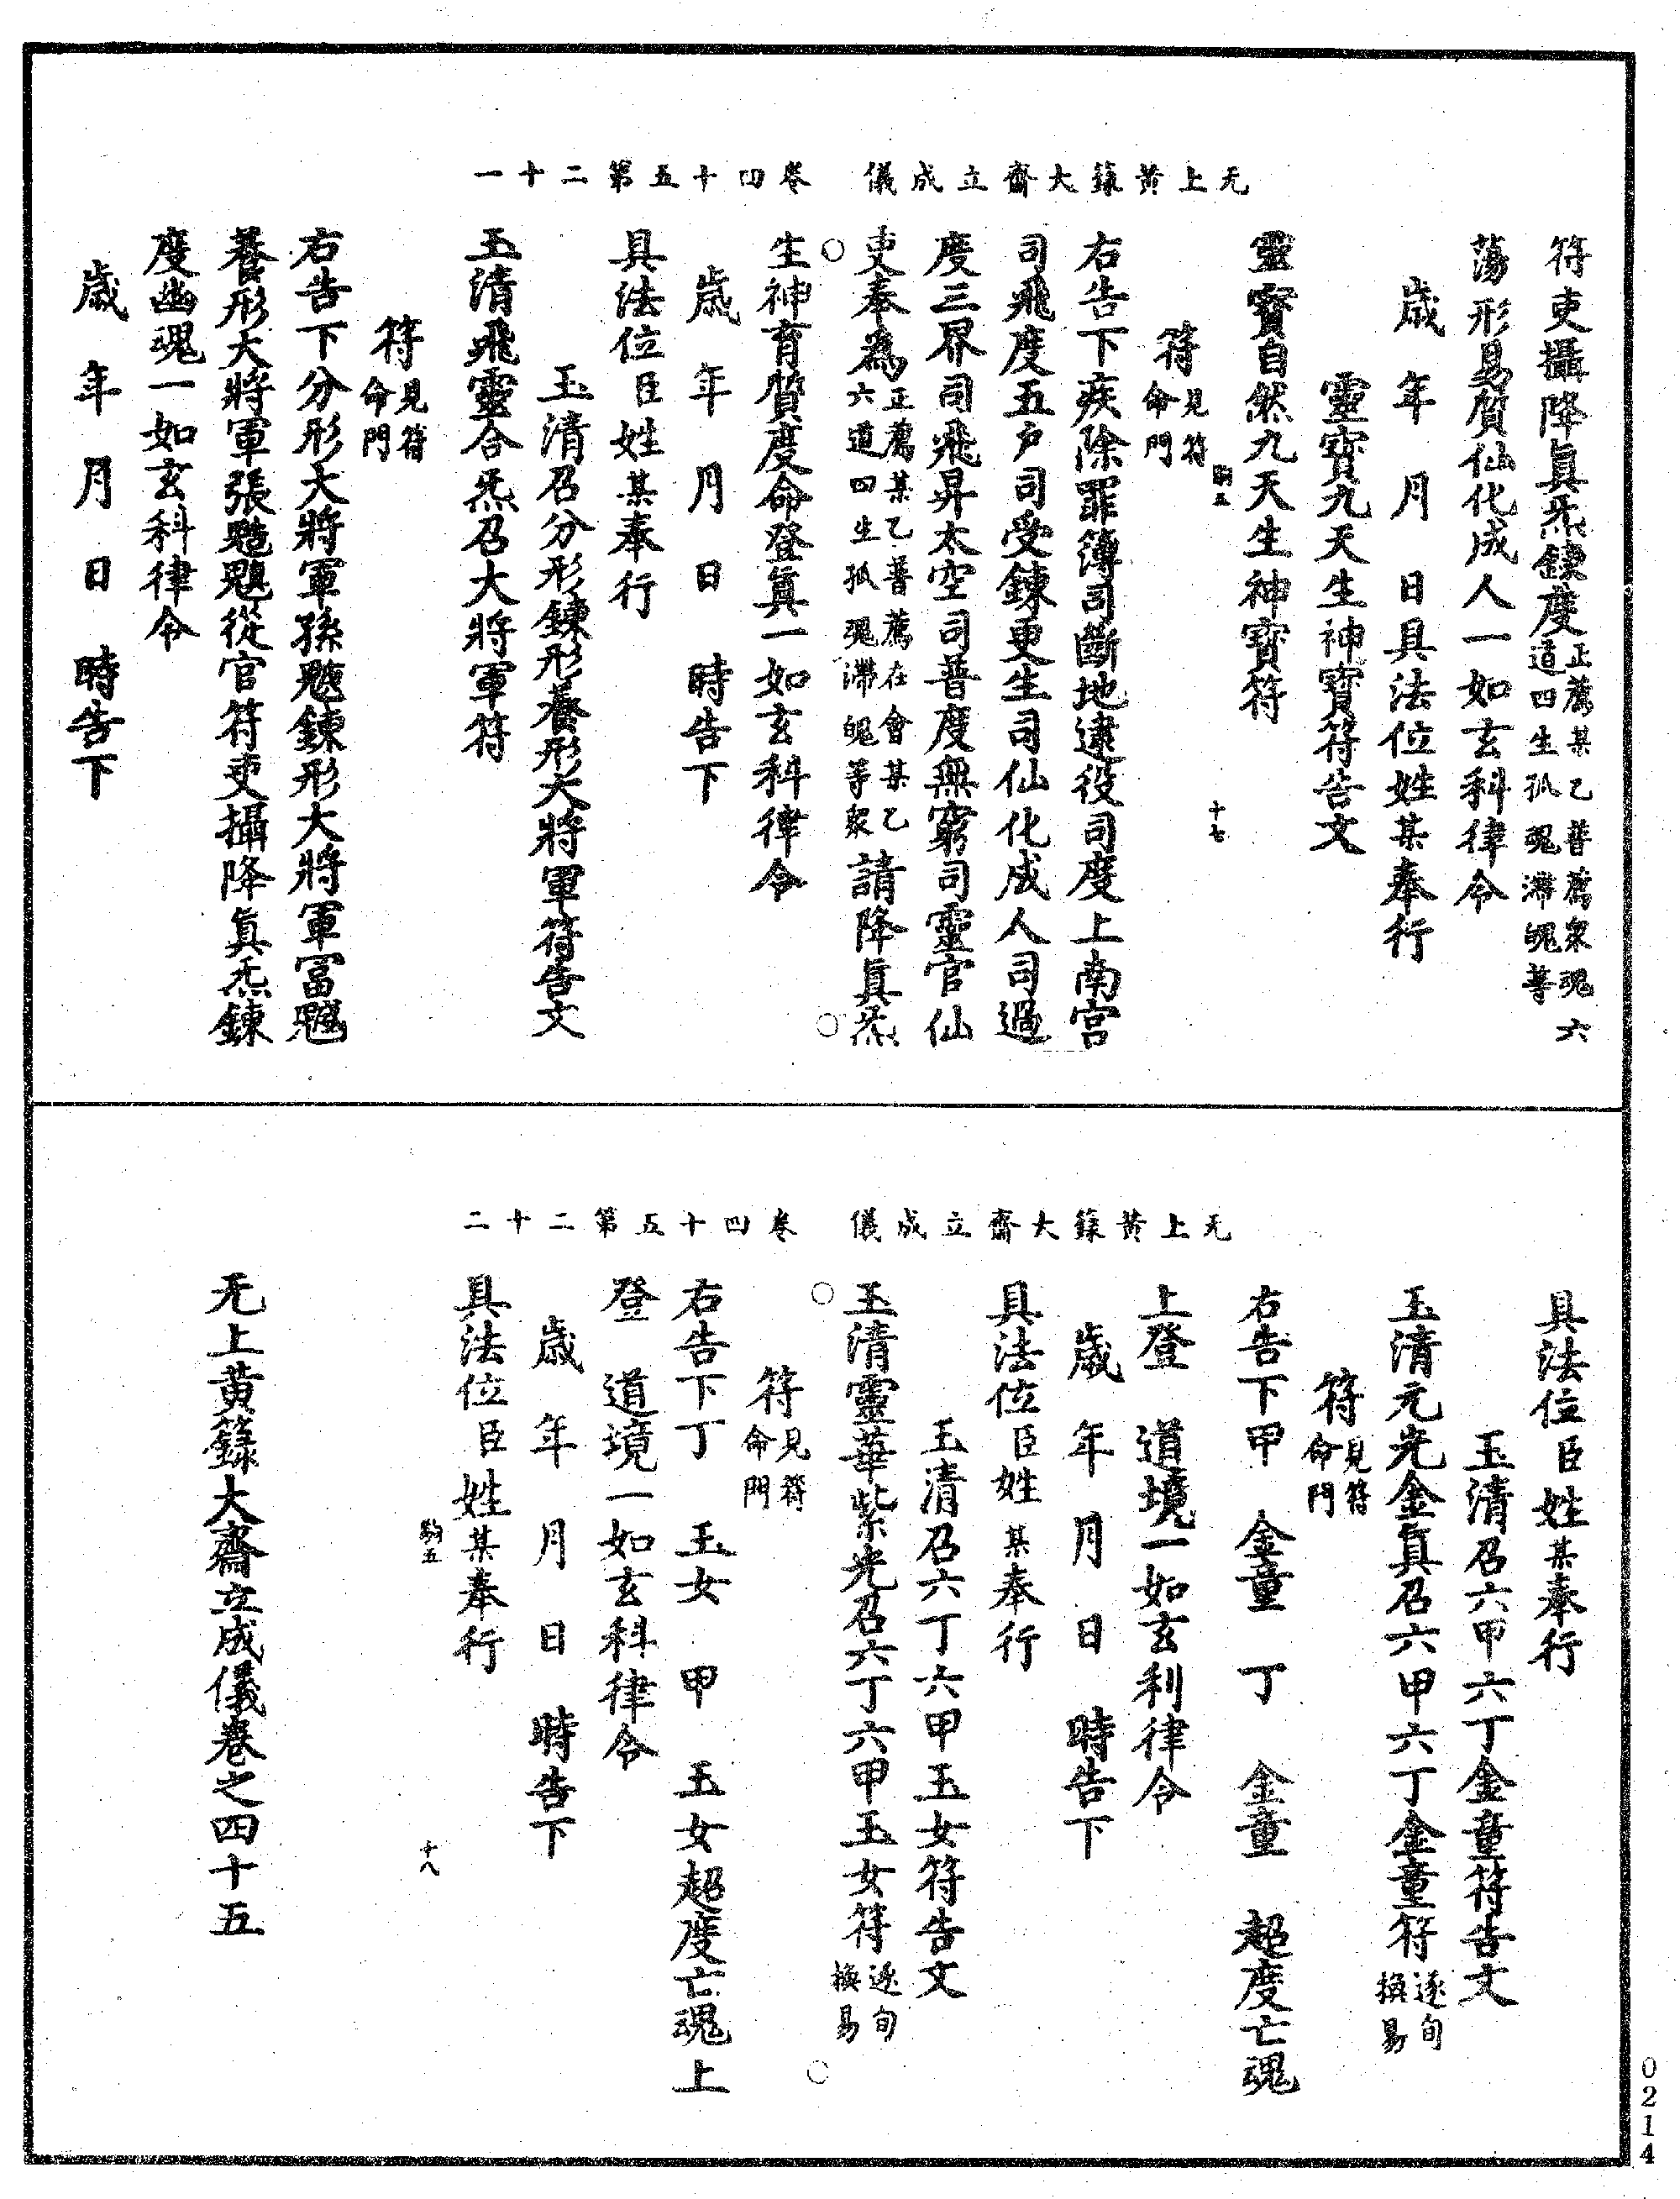 无上黃籙大齋立成儀　卷四十五第二十一
符吏攝降眞炁鍊度正薦某乙普薦衆魂六道四生孤魂滯魄等
蕩形易質仙化成人一如玄科律令
歲　年　月　日具法位姓某奉行
靈寶九天生神寶符告文
靈寶自然九天生神寶符
駒五　十七
符見符命門
右告下疾除罪簿司斷地逮役司度上南宮
司飛度五户司受鍊更生司仙化成人司過
度三界司飛昇太空司普度無窮司靈官仙
吏奉為正薦某乙普薦在會某乙六道四生孤魂滯魄等衆請降眞炁
生神育質度命登眞一如玄科律令
歲　年　月　日　時告下
具法位臣姓某奉行
玉清召分形鍊形養形大將軍符告文
玉清飛靈合炁召大將軍符
符見符命門
右告下分形大將軍孫鍊形大將軍冨
養形大將軍張從官符吏攝降眞炁鍊
度幽魂一如玄科律令
歲　年　月　日　時告下
无上黃籙大齋立成儀　卷四十五第二十二
具法位臣姓某奉行
玉清召六甲六丁金童符告文
玉清元光金眞召六甲六丁金童符逐旬換易
符見符命門
右告下甲　金童　丁　金童　超度亡魂
上登　道境一如玄利律令
歲　年　月　日　時告下
具法位臣姓某奉行
玉清召六丁六甲玉女符告文
玉清靈華紫光召六丁六甲玉女符逐旬換易
符見符命門
右告下丁　玉女　甲　玉女超度亡魂上
登　道境一如玄科律令
歲　年　月　日　時告下
具法位臣姓某奉行
駒五　十八
无上黃籙大齋立成儀卷之四十五
0214